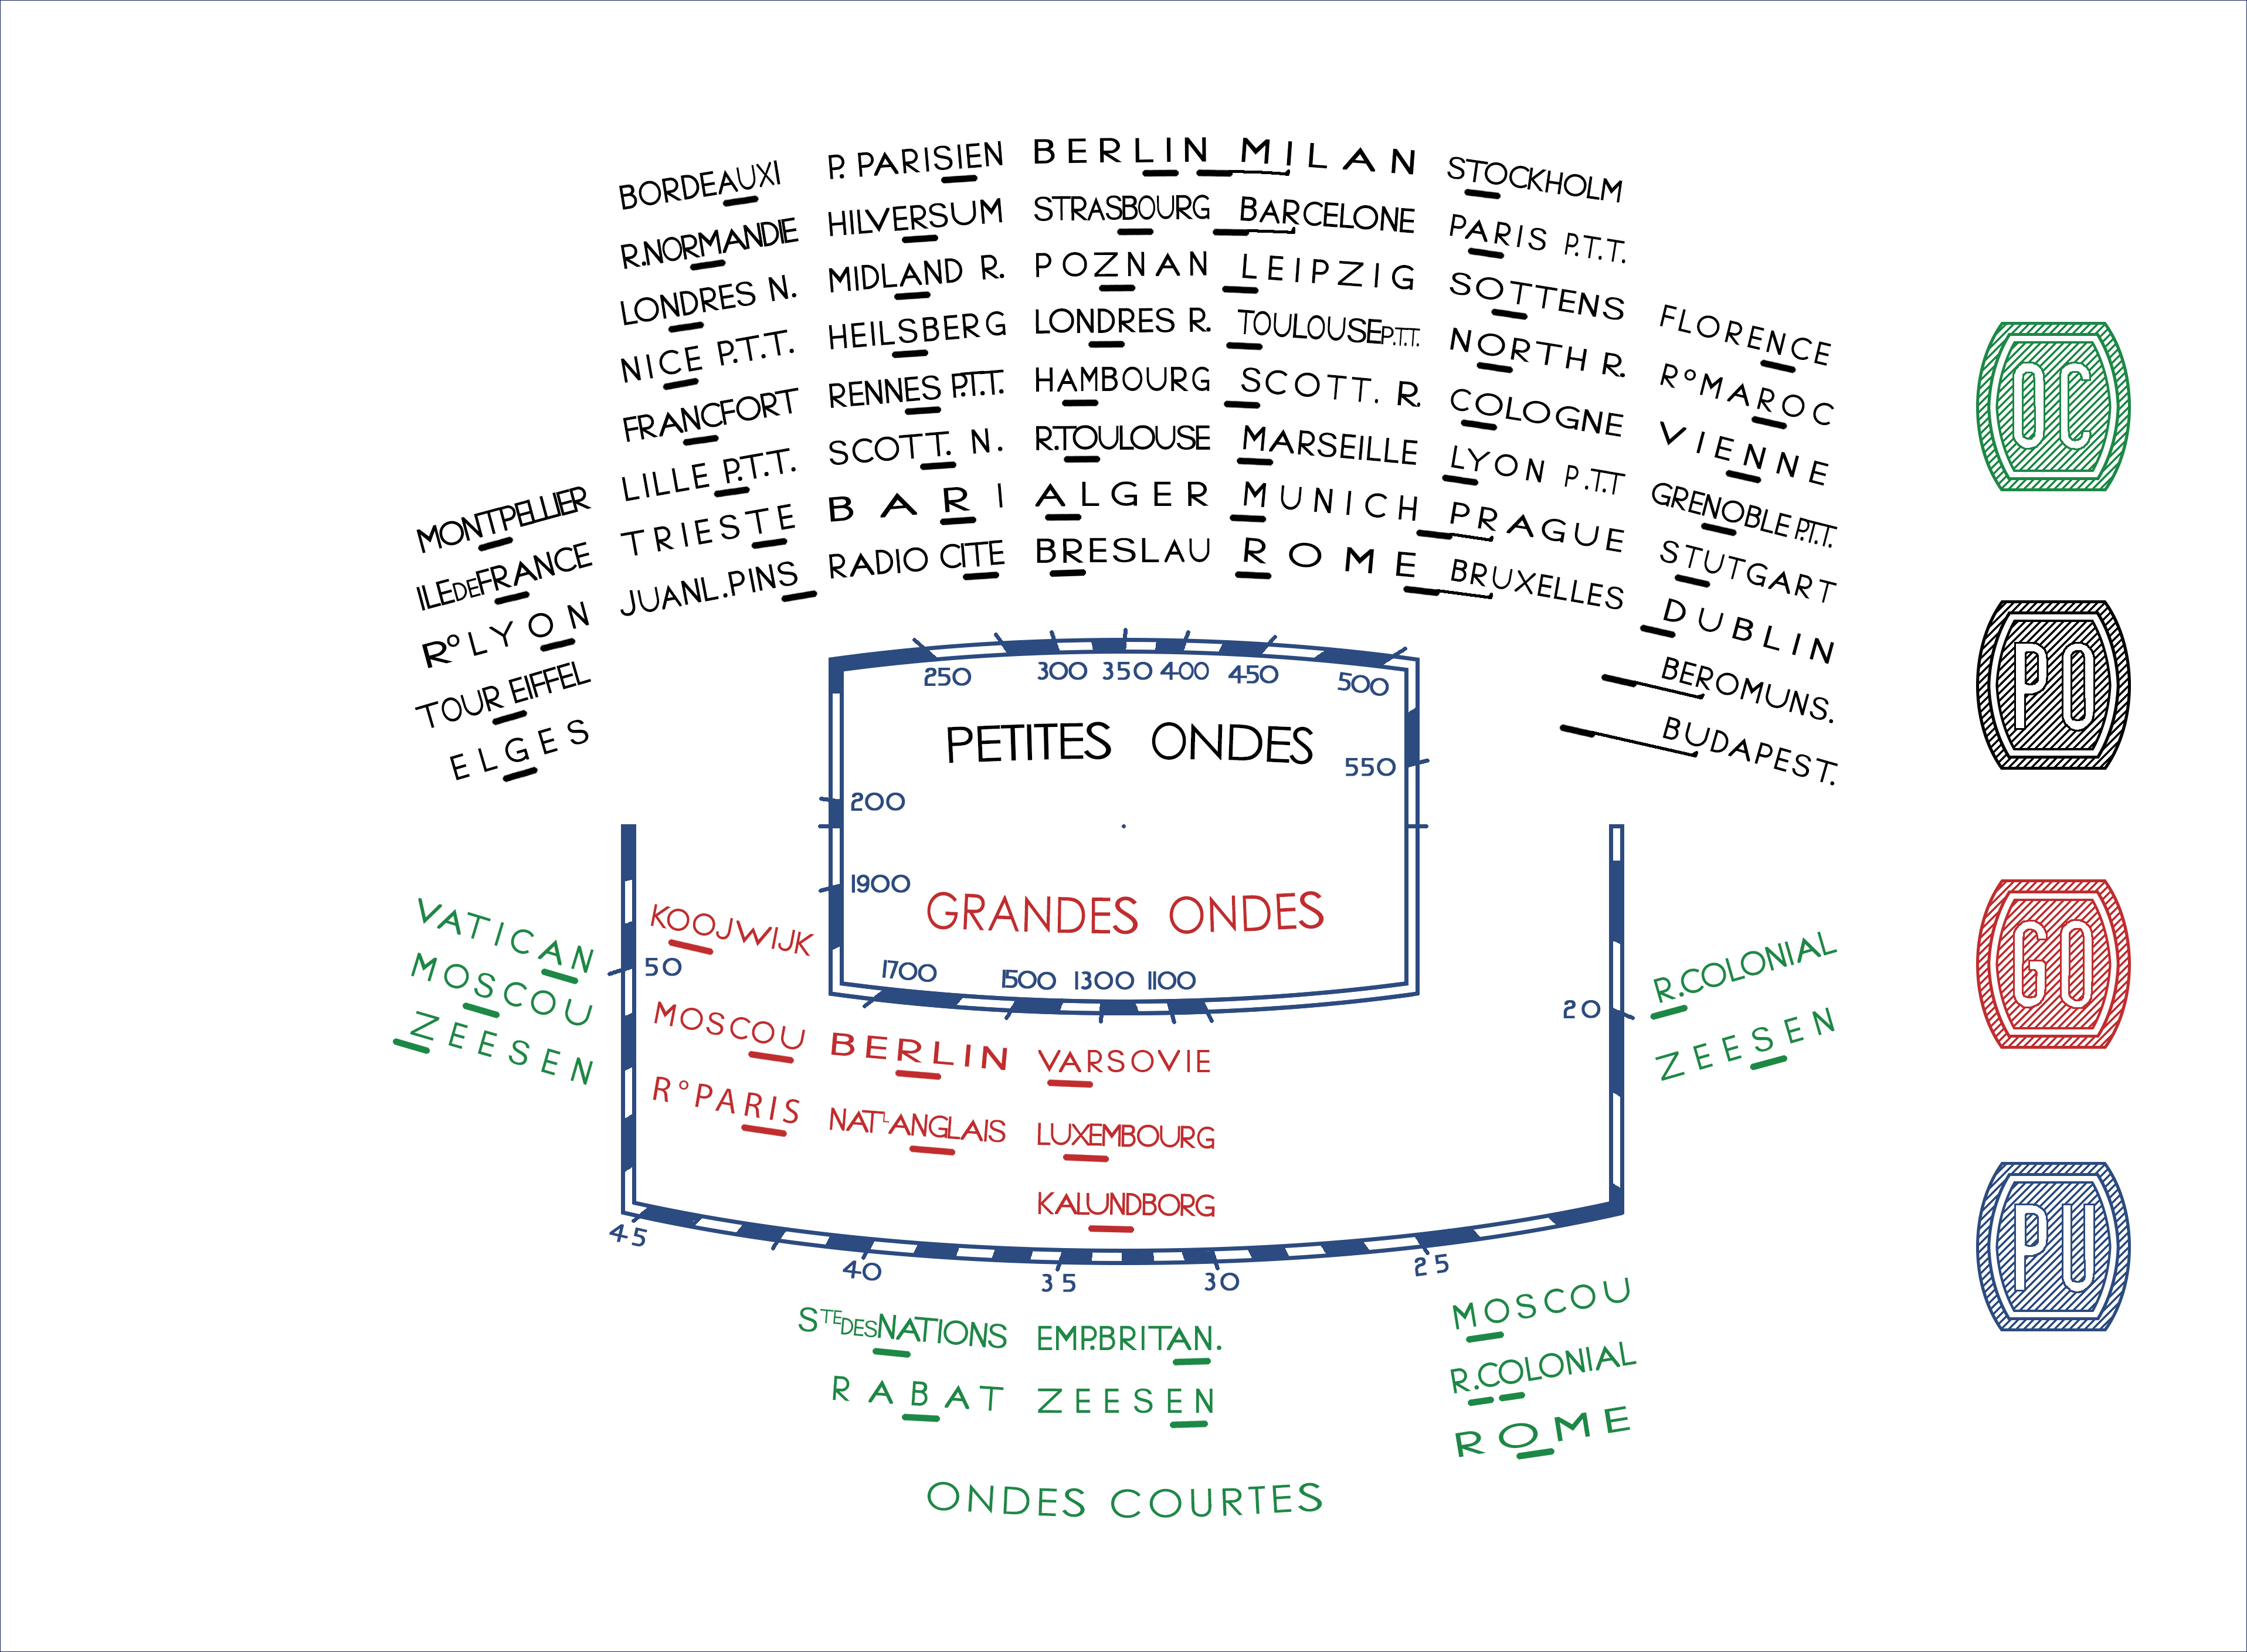 BORDEAUXI
R.NORMANDIE
LONDRES N.
NICE P.T.T.
FRANCFORT
LILLE P.T.T.
TRIESTE
JUANL.PINS
P. PARISIEN
HILVERSUM
MIDLAND R.
HEILSBERG
RENNES P.T.T.
SCOTT. N.
BARI
RADIO CITE
BERLIN
STRASBOURG
POZNAN
LONDRES R.
HAMBOURG
R.TOULOUSE
ALGER
BRESLAU
MILAN
BARCELONE
LEIPZIG
TOULOUSE P.T.T.
SCOTT. R.
MARSEILLE
MUNICH
ROME
STOCKHOLM
PARIS P.T.T.
SOTTENS
NORTH R.
COLOGNE
LYON P.T.T
PRAGUE
BRUXELLES
FLORENCE
R° MAROC
VIENNE
GRENOBLE P.T.T.
STUTGART
DUBLIN
BEROMUNS.
BUDAPEST.
MONTPELLIER
ILE DE FRANCE
R° LYON
TOUR EIFFEL
ELGES
250 300 350 400 450 500
PETITES ONDES
550
200
1900
GRANDES ONDES
1700 1500 1300 1100
VATICAN
MOSCOU
ZEESEN
50
KOOJWIJK
MOSCOU BERLIN VARSOVIE
R° PARIS NATL ANGLAIS LUXEMBOURG
KALUNDBORG
20
R.COLONIAL
ZEESEN
45 40 35 30 25
STE DES NATIONS EMP.BRITAN.
RABAT ZEESEN
MOSCOU
R.COLONIAL
ROME
ONDES COURTES
OC
PO
GO
PU